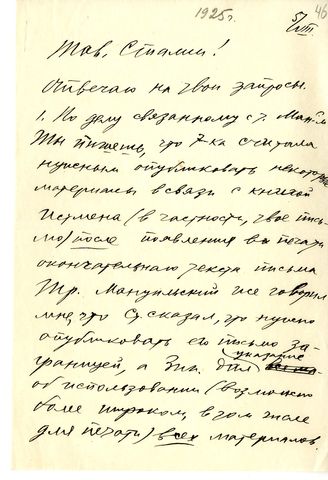 1925 г.
46
5/VIII.
Тов. Сталин!
Отвечаю на твои запросы.
1. По делу связанному с т. Ман-м
Ты пишешь, что 7-ка считала
нужным опубликовать некоторые
материалы в связи с книгой
Истмена (в частности, твое пись-
мо) после появления в печати
окончательного текста письма
Тр. Мануильский же говорил
мне, что Ст. сказал, что нужно
опубликовать его письмо за-
границей, а Зин. дал указание
об использовании (возможно
более широком, в том числе
для печати) всех материалов.